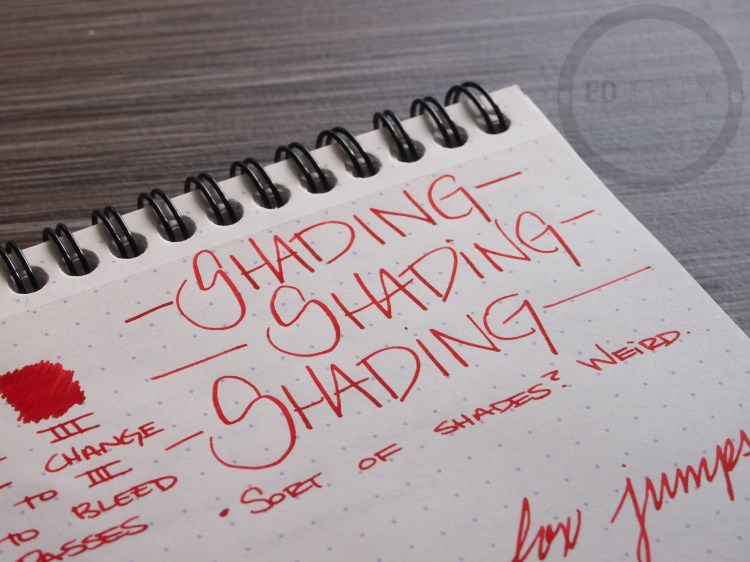 ED JELLEY
-SHADING-
-SHADING-
-SHADING-
III
- CHANGE
TO III -
TO BLEED
PASSES
• SORT OF SHADES? WEIRD.
fox jumps